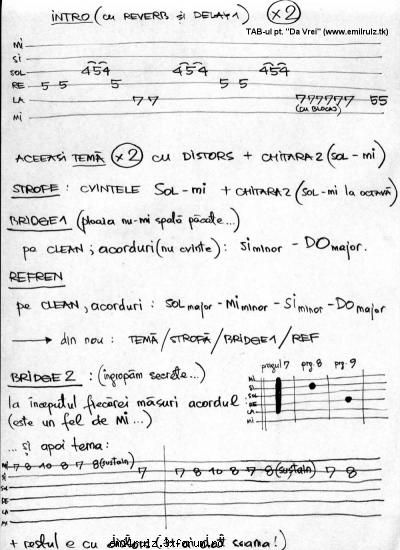 INTRO (cu REVERB și DELAY 1) (x2)
TAB-ul pt. "Da Vrei" (www.emilrulz.tk)
Mi
SI
SOL 454 454 454
RE 5 5 5 5 5
LA 7 7 777777 55
(CU BLOCAJ)
Mi
ACEEASI TEMĂ (x2) CU DISTORS + CHITARA 2 (SOL - mi)
STROFE : CVINTELE SOL - mi + CHITARA 2 (SOL - mi la OCTAVĂ)
BRIDGE 1 (ploaia nu-mi spală păcate...)
pe CLEAN ; acorduri (nu cvinte) : SI minor - DO major.
REFREN
pe CLEAN , acorduri : SOL major - Mi minor - Si minor - DO major
→ din nou : TEMĂ / STROFĂ / BRIDGE 1 / REF
pragul 7 prg. 8 prg. 9
BRIDGE 2 : (îngropăm secrete...)
MI
SI
SOL
RE
LA
MI
la începutul fiecărei măsuri acordul :
(este un fel de Mi...)
... și apoi tema :
Mi 7 8 10 8 7 8 (sustain) 7 8 10 8 7 8 (sustain) 7 8
SI 7
SOL
RE
LA
MI
+ restul e cu